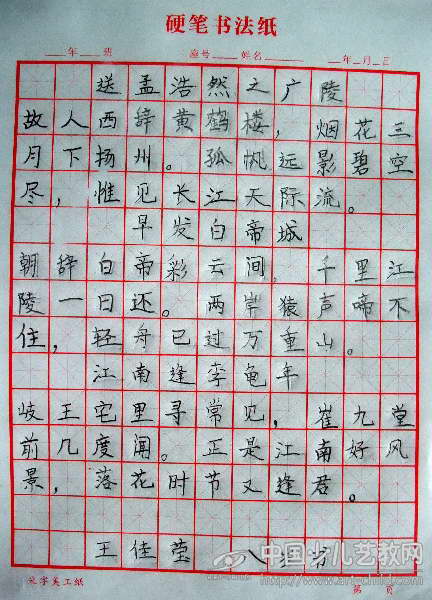 硬笔书法纸
年 班 座号 姓名 年 月 日
送孟浩然之广陵
故人西辞黄鹤楼，烟花三
月下扬州。孤帆远影碧空
尽，惟见长江天际流。
早发白帝城
朝辞白帝彩云间，千里江
陵一日还。两岸猿声啼不
住，轻舟已过万重山。
江南逢李龟年
岐王宅里寻常见，崔九堂
前几度闻。正是江南好风
景，落花时节又逢君。
王佳莹 八岁
中国少儿艺教网
第 页